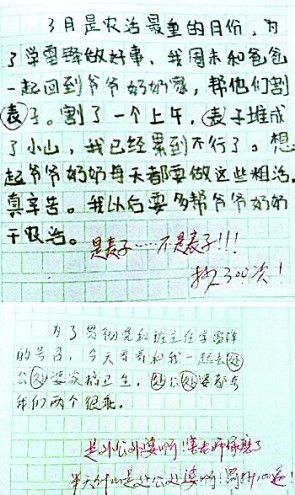 3月是农活最重的月份，为
了学雷锋做好事，我周末和爸爸
一起回到爷爷奶奶家，帮他们割
表子。割了一个上午，表子堆成
了小山，我已经累到不行了。想
起爷爷奶奶每天都要做这些粗活，
真辛苦。我以后要多帮爷爷奶奶
干农活。
是麦子……不是表子!!!
抄300次!
为了贯彻党和班主任学雷锋
的号召，今天爸爸和我一起去处
公处婆家搞卫生，处公处婆都夸
我们两个很乖。
是外公外婆啊!害老师琢磨了
半天什么是处公处婆啊!罚抄100遍!